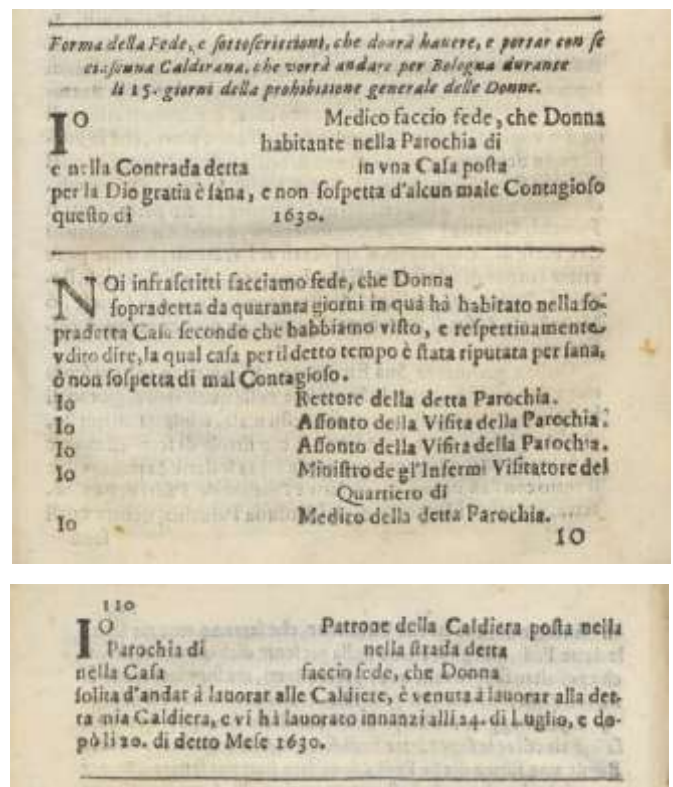 Forma della Fede, e sottoscrittioni, che dourà hauere, e portar con se
ciascuna Caldirana, che vorrà andare per Bologna durante
li 15. giorni della prohibitione generale delle Donne.
IO Medico faccio fede, che Donna
habitante nella Parochia di
e nella Contrada detta in vna Casa posta
per la Dio gratia è sana, e non sospetta d'alcun male Contagioso
questo dì 1630.
NOi infrascritti facciamo fede, che Donna
sopradetta da quaranta giorni in quà hà habitato nella so-
pradetta Casa secondo che habbiamo visto, e respettiuamente
vdito dire, la qual casa per il detto tempo è stata riputata per sana,
ò non sospetta di mal Contagioso.
Io Rettore della detta Parochia.
Io Assonto della Visita della Parochia.
Io Assonto della Visita della Parochia.
Io Ministro de gl'Infermi Visitatore del
Quartiero di
Io Medico della detta Parochia.
IO
110
IO Patrone della Caldiera posta nella
Parochia di nella strada detta
nella Casa faccio fede, che Donna
solita d'andar à lauorar alle Caldiere, è venuta à lauorar alla det-
ta mia Caldiera, e vi hà lauorato innanzi alli 24. di Luglio, e do-
pò li 20. di detto Mese 1630.